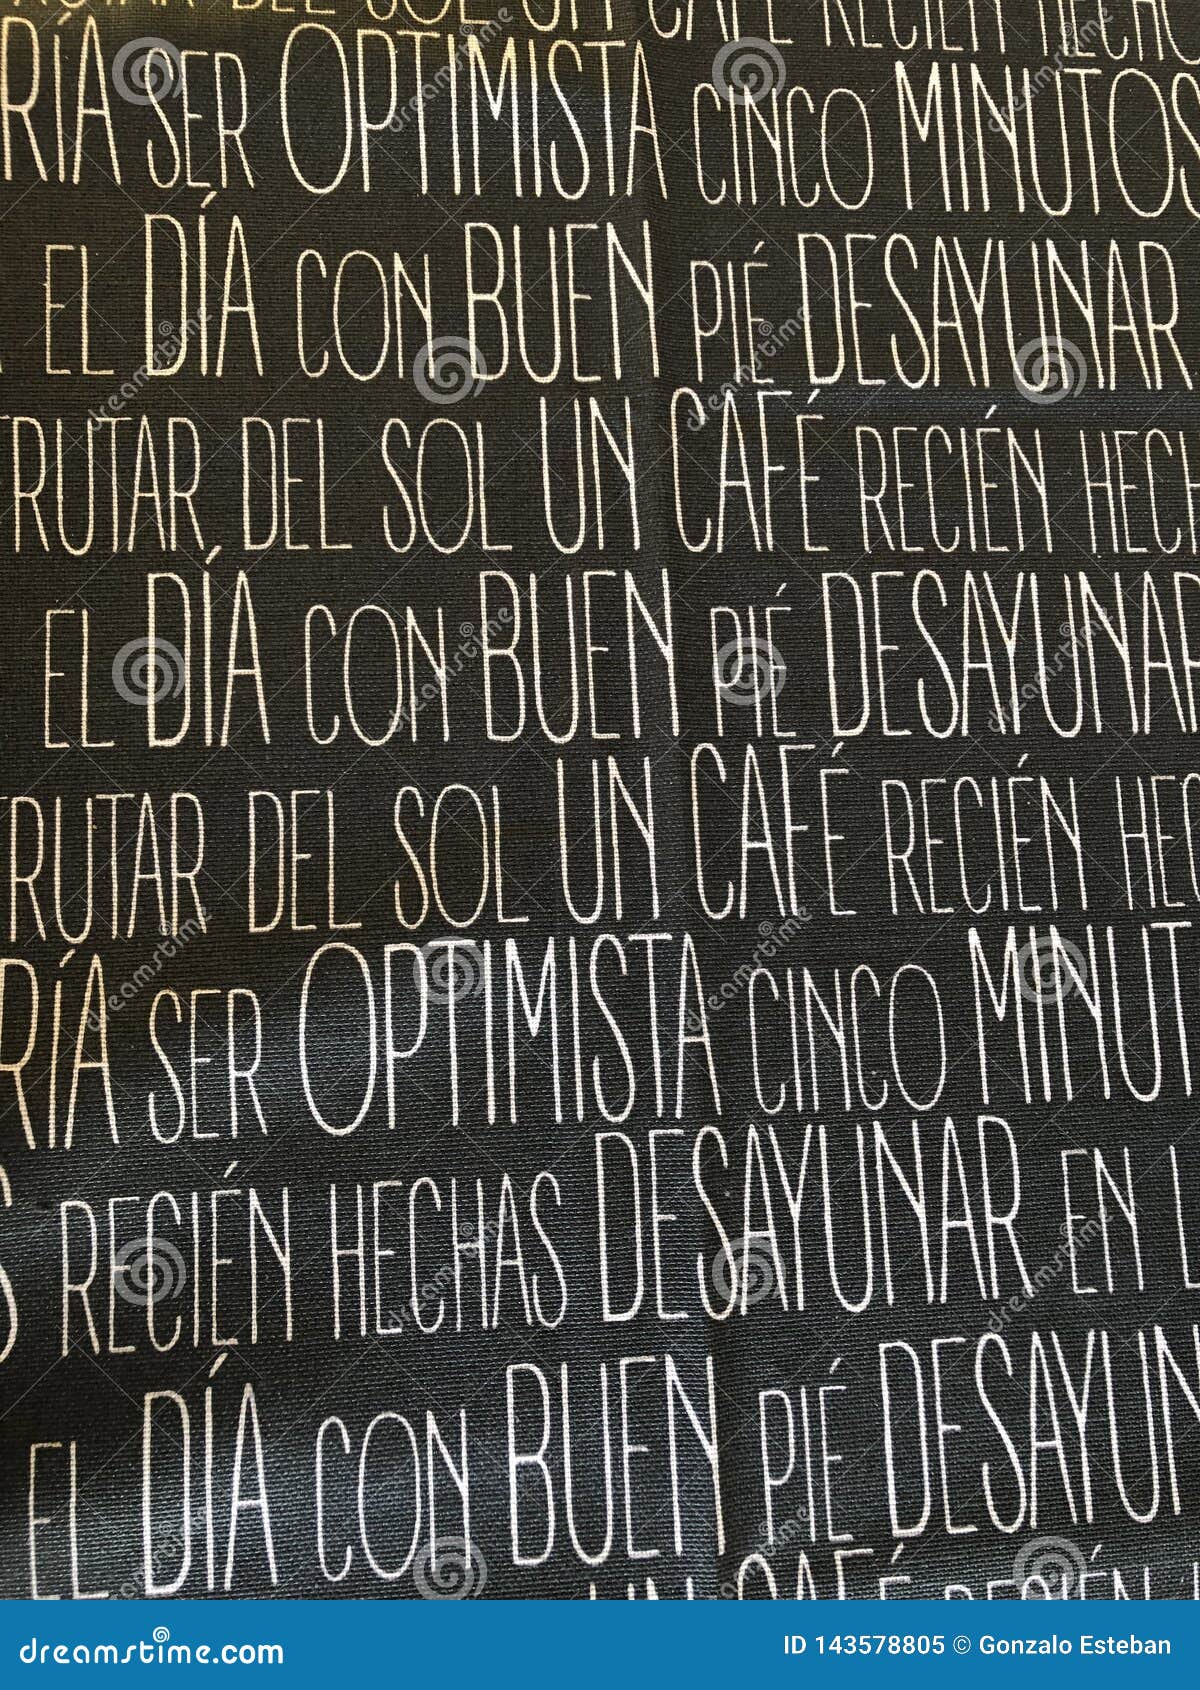 DEL SOL UN CAFÉ RECIÉN HECHO
RÍA SER OPTIMISTA CINCO MINUTOS
EL DÍA CON BUEN PIÉ DESAYUNAR
TRUTAR DEL SOL UN CAFÉ RECIÉN HECH
EL DÍA CON BUEN PIÉ DESAYUNAR
TRUTAR DEL SOL UN CAFÉ RECIÉN HEC
RÍA SER OPTIMISTA CINCO MINUT
S RECIÉN HECHAS DESAYUNAR EN L
EL DÍA CON BUEN PIÉ DESAYUN
UN CAFÉ RECIÉN
dreamstime.com
ID 143578805 © Gonzalo Esteban